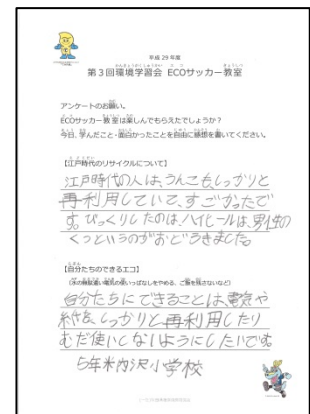 平成 29 年度
第3回環境学習会 ECOサッカー教室
アンケートのお願い。
ECOサッカー教室は楽しんでもらえたでしょうか?
今日、学んだこと・面白かったことを自由に感想を書いてください。
【江戸時代のリサイクルについて】
江戸時代の人は、うんこもしっかりと
再利用していて、すごかったで
す。びっくりしたのは、ハイヒールは、男性の
くつというのがおどろきました
【自分たちのできるエコ】
(水の無駄遣い電気の使いっぱなしをやめる、ご飯を残さないなど)
自分たちにできることは、電気や
紙を、しっかりと再利用したり
むだ使いしないようにしたいです。
5年 米内沢小学校